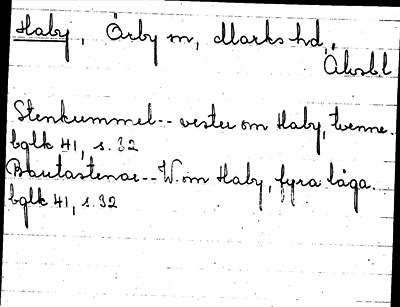 Haby, Örby m, Marks hd,
Älvsbl
Stenkummel-- vester om Haby, tvenne.
bglk 41, s. 32
Bautastenar-- W. om Haby, fyra låga.
bglk 41, s. 32